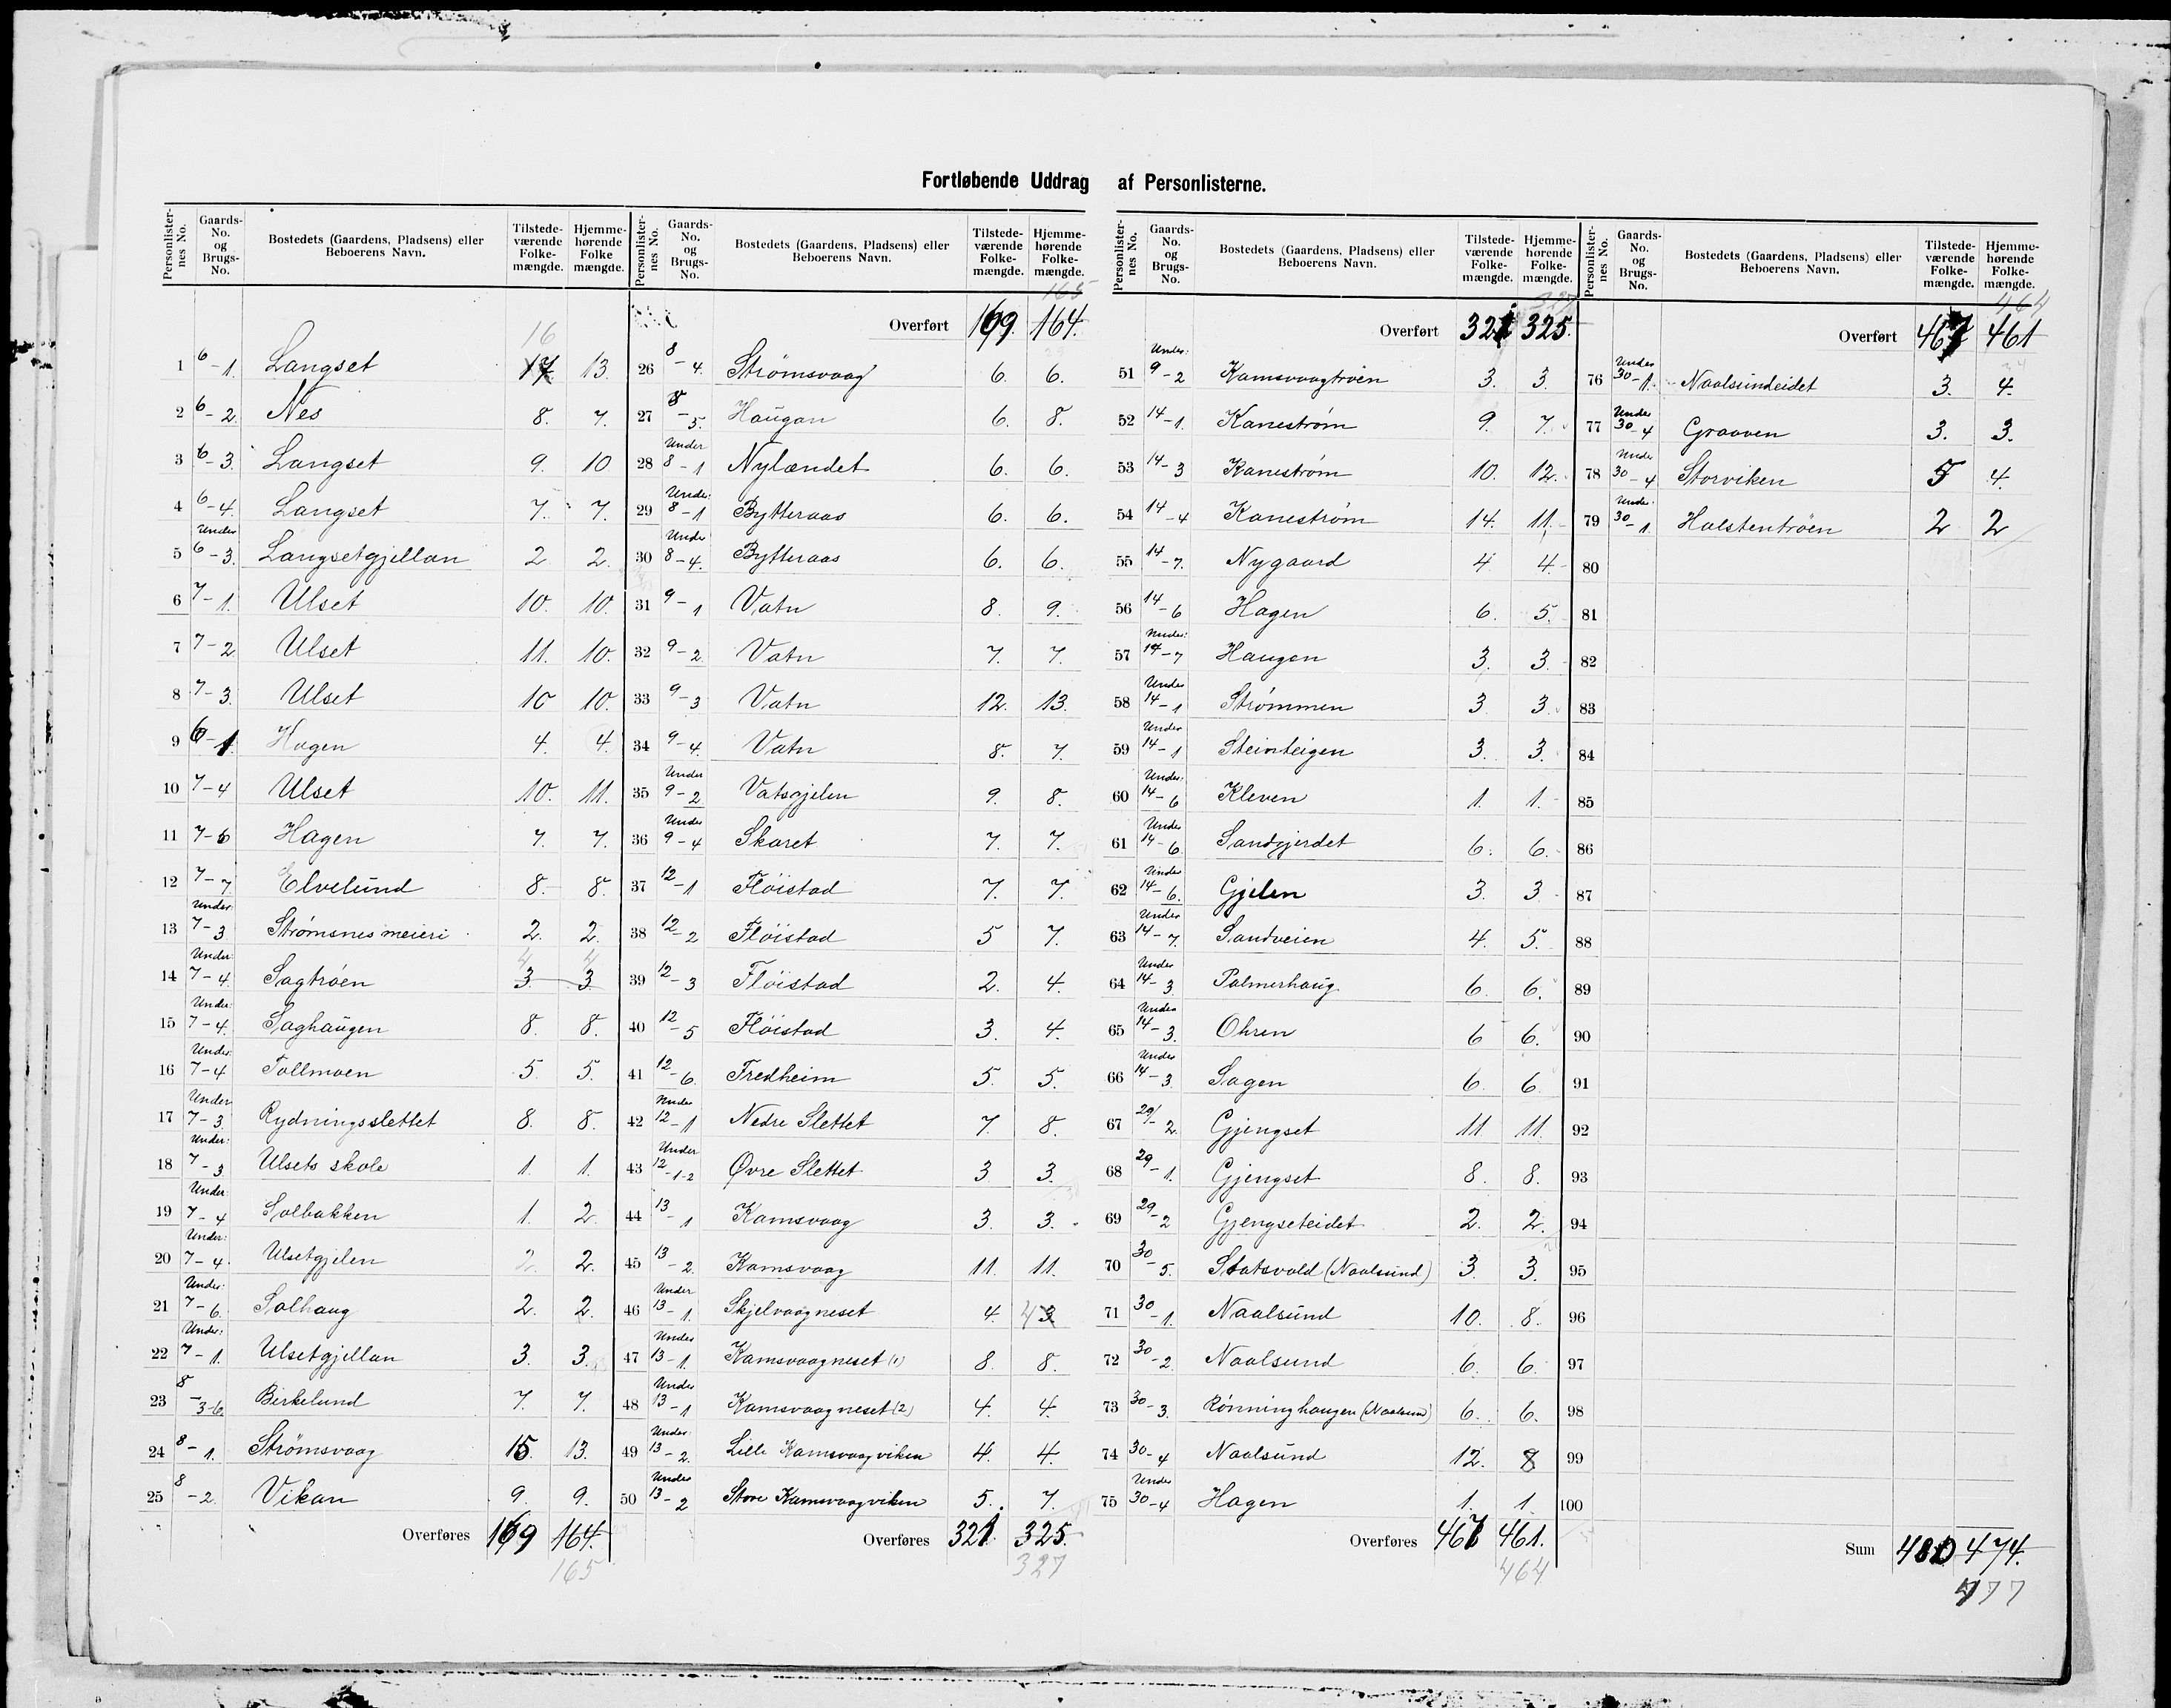 Fortløbende Uddrag af Personlisterne.
Personlister-nes No. Gaards-No. og Brugs-No. Bostedets (Gaardens, Pladsens) eller Beboerens Navn. Tilstede-værende Folke-mængde. Hjemme-hørende Folke mængde.
16
1 6-1. Langset 17 13.
2 6-2 Nes 8. 7.
3 6-3. Langset 9. 10
4 6-4. Langset 7. 7.
5 Under 6-3. Langsetgjellan 2 2.
6 7-1. Ulset 10. 10.
7 7-2 Ulset 11. 10.
8 7-3. Ulset 10 10.
9 6-1. Hagen 4. 4.
10 7-4 Ulset 10. 11.
11 7-6 Hagen 7. 7.
12 7-7. Elvelund 8. 8.
13 Under: 7-3 Strømsnes meieri 2. 2.
4 4
14 Under: 7-4. Sagtrøen 3 3
15 Under: 7-4. Saghaugen 8. 8.
16 Under: 7-4 Tollmoen 5 5.
17 Under 7-3. Rydningsslettet 8. 8.
18 Under: 7-3 Ulsets skole 1. 1.
19 Under: 7-4 Solbakken 1. 2.
20 Under: 7-4. Ulsetgjelen 2. 2.
21 Under: 7-6. Solhaug 2. 2.
22 Under: 7-1. Ulsetgjellan 3. 3.
23 8-3-6. Birkelund 7. 7.
24 8-1. Strømsvaag 15. 13.
25 8-2. Vikan 9. 9.
Overføres 169 164.
165
Personlister-nes No. Gaards-No. og Brugs-No. Bostedets (Gaardens, Pladsens) eller Beboerens Navn. Tilstede-værende Folke-mængde. Hjemme-hørende Folke-mængde.
165
Overført 169. 164.
26 8-4. Strømsvaag 6. 6.
27 8-5. Haugan 6. 8.
28 Under 8-1 Nylændet 6. 6.
29 Under: 8-1 Bytteraas 6. 6.
30 Under 8-4. Bytteraas 6. 6.
31 9-1 Vatn 8. 9.
32 9-2 Vatn 7. 7.
33 9-3 Vatn 12. 13.
34 9-4. Vatn 8. 7.
35 Under 9-2 Vatsgjelen 9. 8.
36 Under 9-4 Skaret 7. 7.
37 12-1 Fløistad 7. 7.
38 12-2 Fløistad 5 7.
39 12-3 Fløistad 2. 4.
40 12-5 Fløistad 3. 4.
41 12-6. Fredheim 5. 5.
42 Under 12-1 Nedre Slettet 7. 8.
43 Under 12-1-2 Øvre Slettet 3 3.
44 13-1 Kamsvaag 3. 3.
45 13-2. Kamsvaag 11. 11.
46 Under 13-1. Skjelvaagneset 4. 4 3
47 Under 13-1. Kamsvaagneset (1) 8. 8.
48 Under 13-1 Kamsvaagneset (2) 4. 4.
49 Under: 13-2. Lille Kamsvaagviken 4. 4.
50 Under 13-2 Store Kamsvaagviken 5. 7.
Overføres 321. 325.
327
Personlister-nes No. Gaards-No. og Brugs-No. Bostedets (Gaardens, Pladsens) eller Beboerens Navn. Tilstede-værende Folke-mængde. Hjemme-hørende Folke-mængde.
327
Overført 321 325.
51 Under: 9-2 Kamsvaagtrøen 3. 3.
52 14-1. Kanestrøm 9. 7.
53 14-3 Kanestrøm 10. 12.
54 14-4 Kanestrøm 14. 11.
55 14-7. Nygaard 4 4.
56 14-6 Hagen 6. 5.
57 Under: 14-7 Haugen 3. 3.
58 Under 14-1 Strømmen 3. 3.
59 Under 14-1 Steinteigen 3. 3.
60 Under: 14-6 Kleven 1. 1.
61 Under 14-6. Sandgjerdet 6. 6.
62 Under 14-6. Gjelen 3. 3
63 Under 14-7. Sandveien 4. 5.
64 Under 14-3. Palmerhaug 6. 6.
65 Under 14-3. Ohren 6 6.
66 Under 14-3. Sagen 6. 6.
67 29-2. Gjengset 11 11.
68 29-1. Gjengset 8. 8.
69 29-2 Gjengseteidet 2. 2.
70 30-5. Statsvold (Naalsund) 3. 3.
71 30-1. Naalsund 10. 8.
72 30-2. Naalsund 6. 6.
73 30-3. Rønninghaugen (Naalsund) 6. 6.
74 30-4 Naalsund 12. 8
75 Under 30-4 Hagen 1. 1.
Overføres 467 461.
464
Personlister-nes No. Gaards-No. og Brugs-No. Bostedets (Gaardens, Pladsens) eller Beboerens Navn. Tilstede-værende Folke-mængde. Hjemme-hørende Folke-mængde.
464
Overført 467 461
76 Under 30-1. Naalsundeidet 3. 4.
77 Under 30-4 Graaven 3. 3.
78 Under 30-4 Storviken 5 4.
79 Under: 30-1. Halstentrøen 2 2
80
81
82
83
84
85
86
87
88
89
90
91
92
93
94
95
96
97
98
99
100
Sum 480 474.
477